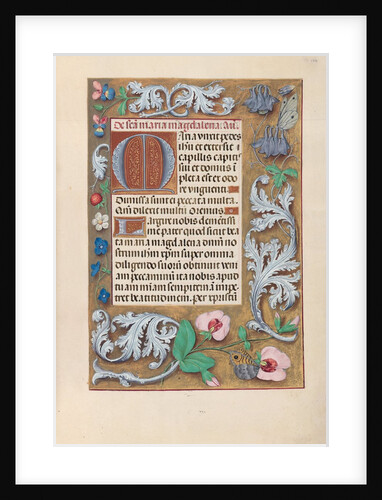 De sca maria magdalena: An.
Maria unxit pedes
ihu et extersit
capillis capitis
sui et domus i
pleta est et odo
re unguenti.
Dimissa sunt ei peccata multa.
Qm dilexit multu Oremus.
Largire nobis clemetissi
me pater quod sicut bea
ta maria magdalena dnm no
strum ihm xpm super omnia
diligendo suoru obtinuit veni
am peccaminu ita nobis apud
tuam miam sempiternā im
pet beatitudinem. per xpristu